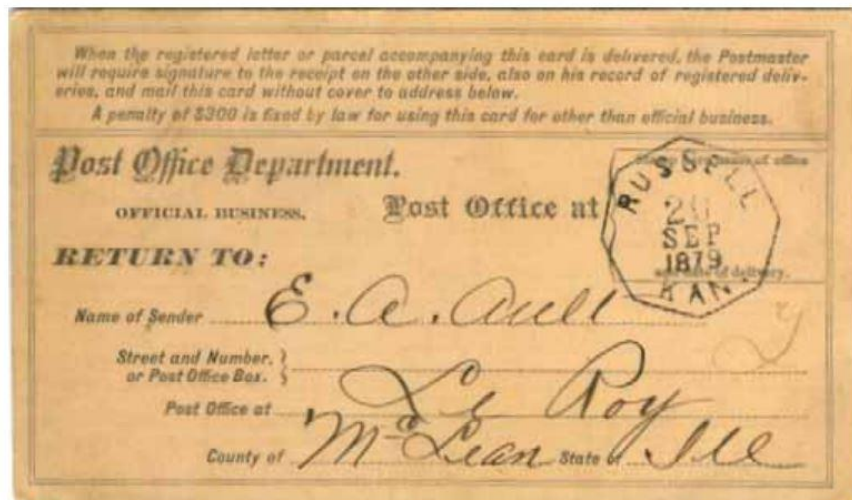 When the registered letter or parcel accompanying this card is delivered, the Postmaster
will require signature to the receipt on the other side, also on his record of registered deliv-
eries, and mail this card without cover to address below.
A penalty of $300 is fixed by law for using this card for other than official business.
Post Office Department.
OFFICIAL BUSINESS.
Post Office at
RUSSELL
SEP
1879
KAN.
of office
and date of delivery.
RETURN TO:
Name of Sender E. A. Aull
Street and Number,
or Post Office Box.
Post Office at Le Roy
County of McLean State of Ill